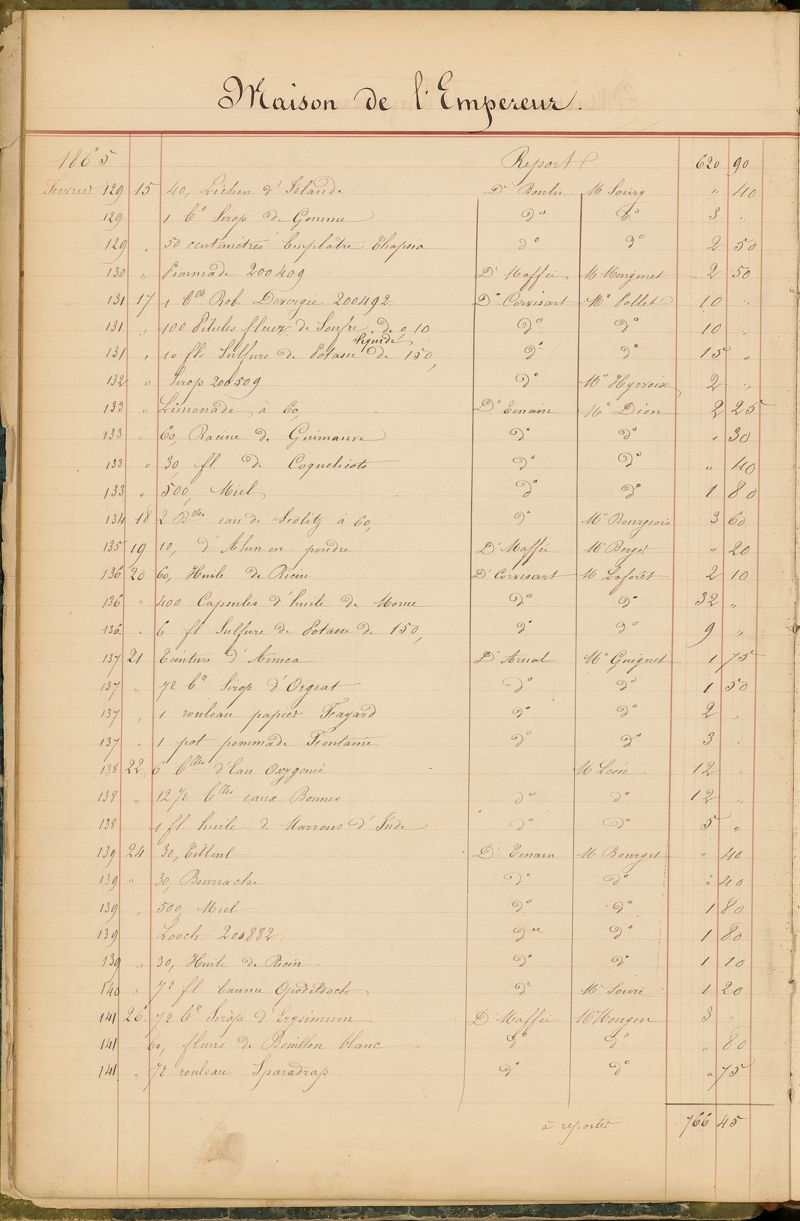 Maison de l'Empereur.
1865 Report 620 90
Fevrier 129 15 40, Lichen d'Islande Dr M Soury " 40
129 1 bo Sirop de Gomme do do 3 "
129 " 50 centimètres Emplatre Thapsia do do 2 50
130 " Pommade 200409 Dr Maffei M 2 50
131 17 1 blle Rob. 200492 Dr Corvisart Mr Pollet 10 "
131 " 100 Pilules fleur de Soufre de 0 10 do do 10 "
131 " 10 fl. Sulfure de Potasse liquide de 150, do do 15 "
132 " Sirop 200509 do Mr Hyrvoix 2 "
133 " Limonade à 60, Dr Tenain Mr Dion 2 25
133 " 60, Racine de Guimauve do do " 30
133 " 30, fl. de Coquelicots do do " 40
133 " 500, Miel do do 1 80
134 18 2 Blles eau de Sedlitz à 60, do Mr Bourgeois 3 60
135 19 10, d'Alun en poudre Dr Maffei Mr Berger " 20
136 20 60, Huile de Ricin Dr Corvisart M Laforet 2 10
136 " 400 Capsules d'huile de Morue do do 32 "
136 " 6 fl Sulfure de Potasse de 150, do do 9 "
137 21 Teinture d'Arnica Dr Arnal Mr Guignet 1 75
137 " 1/2 bo Sirop d'Orgeat do do 1 50
137 " 1 rouleau papier Fayard do do 2 "
137 " 1 pot pommade Fontaine do do 3 "
138 22 6 blles d'Eau Oxygenée M Leoni 12 "
138 " 12 1/2 blles eaux Bonnes do do 12 "
138 1 fl huile de Marrons d'Inde do do 5 "
139 24 30, Tilleul Dr Tenain M Bourget " 40
139 " 30, Bourrache do do " 40
139 " 500, Miel do do 1 80
139 Looch 200882 do do 1 80
139 " 30, Huile de Ricin do do 1 10
140 " 1/2 fl baume Opodeldoch do Mr Souvie 1 20
141 26 1/2 bo Sirop d'Erysimum Dr Maffei Mr Mougin 3 "
141 60, fleurs de Bouillon blanc do do " 80
141 " 1/2 rouleau Sparadrap do do " 75
à reporter 766 45